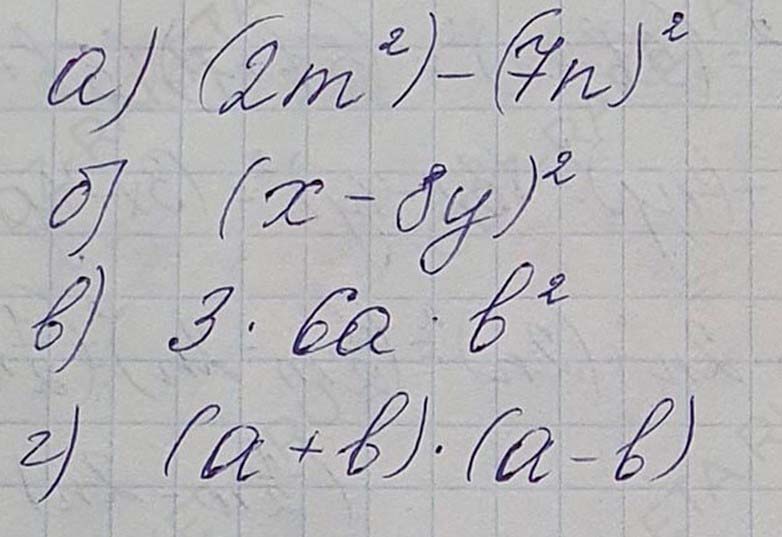 а) (2m²) - (7n)²
б) (x - 8y)²
в) 3 · 6a · b²
г) (a + b) · (a - b)